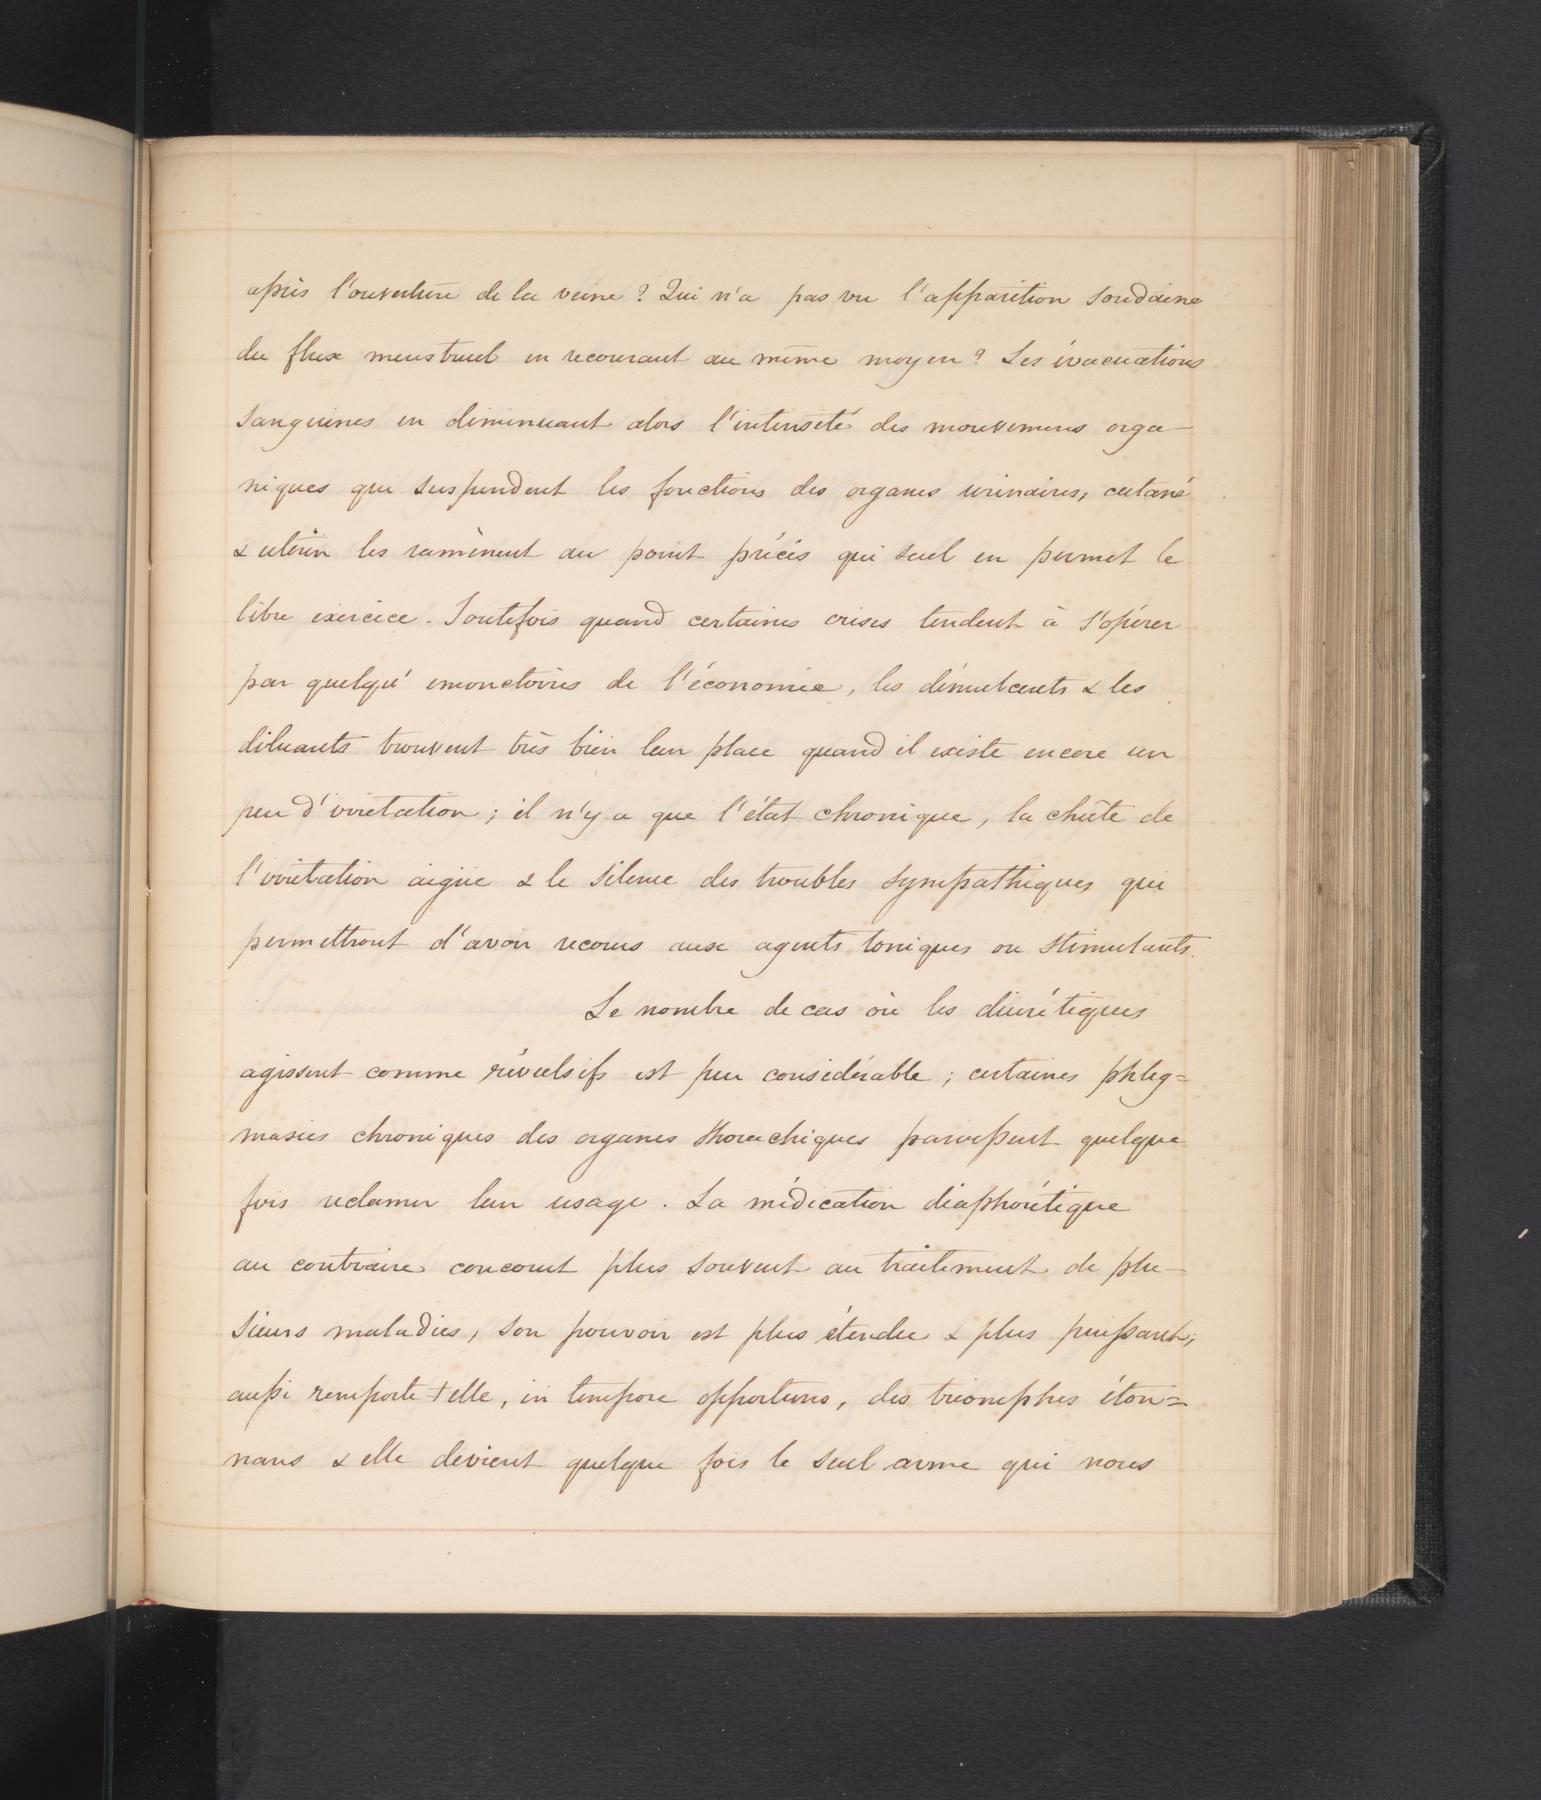 après l'ouverture de la veine ? Qui n'a pas vu l'apparition soudaine
du flux menstruel en recourant au même moyen ? Les évacuations
sanguines en diminuant alors l'intensité des mouvemens orga-
niques qui suspendent les fonctions des organes urinaires, cutané
& utérin les ramènent au point précis qui seul en permet le
libre exercice. Toutefois quand certaines crises tendent à s'opérer
par quelqu' emonctoires de l'économie, les démulcents & les
diluants trouvent très bien leur place quand il existe encore un
peu d'irritation ; il n'y a que l'état chronique, la chûte de
l'irritation aigüe & le silence des troubles sympathiques qui
permettront d'avoir recours aux agents toniques ou stimulants.
Le nombre de cas où les diurétiques
agissent comme révulsifs est peu considérable ; certaines phleg=
masies chroniques des organes thorachiques paroissent quelque
fois réclamer leur usage. La médication diaphorétique
au contraire concourt plus souvent au traitement de plu-
sieurs maladies, son pouvoir est plus étendu & plus puissant ;
aussi remporte t elle, in tempore opportuno, des triomphes éton=
nans & elle devient quelque fois le seul arme qui nous